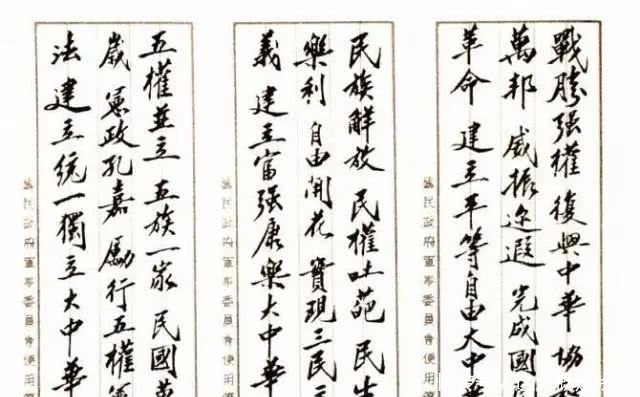 戰勝强權 復興中華 協和
萬邦 威振迩遐 完成國民
革命 建立平等自由大中華
國民政府軍事委員會使用
民族解放 民權吐葩 民生
樂利 自由開花 實現三民主
義 建立富强康樂大中華
國民政府軍事委員會使用
五權並立 五族一家 民國萬
歲 憲政孔嘉 勵行五權憲
法 建立統一獨立大中華
國民政府軍事委員會使用